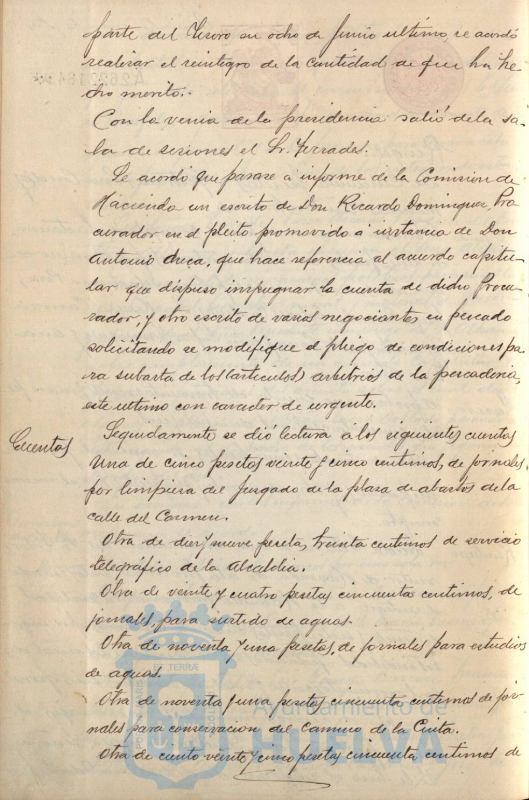 parte del Tesoro en ocho de Junio ultimo se acordó
realizar el reintegro de la cantidad de que ha he
cho merito.
Con la venia de la presidencia salió de la sa-
la de sesiones el Sr. Terrades.
Se acordó que pasase á informe de la Comision de
Hacienda un escrito de Don Ricardo Dominguez Pro
curador en el pleito promovido á instancia de Don
Antonio checa, que hace referencia al acuerdo capitu-
lar que dispuso impugnar la cuenta de dicho Procu
rador, y otro escrito de varios negociantes en pescado
solicitando se modifique el pliego de condiciones pa
ra subasta de los (articulos) arbitrios de la pescaderia,
este ultimo con caracter de urgente.
Cuentas
Seguidamente se dió lectura á las siguientes cuentas
Una de cinco pesetas veinte y cinco centimos, de jornales
por limpieza del juzgado de la plaza de abastos de la
calle del Carmen.
Otra de diez y nueve pesetas, treinta centimos de servicio
telegráfico de la Alcaldia.
Otra de veinte y cuatro pesetas cincuenta centimos, de
jornales, para surtido de aguas.
Otra de noventa y una pesetas, de jornales para estudios
de aguas.
Otra de noventa y una pesetas cincuenta centimos de jor-
nales para conservacion del camino de la Cinta.
Otra de ciento veinte y cinco pesetas cincuenta centimos de
Ayuntamiento de
HUELVA